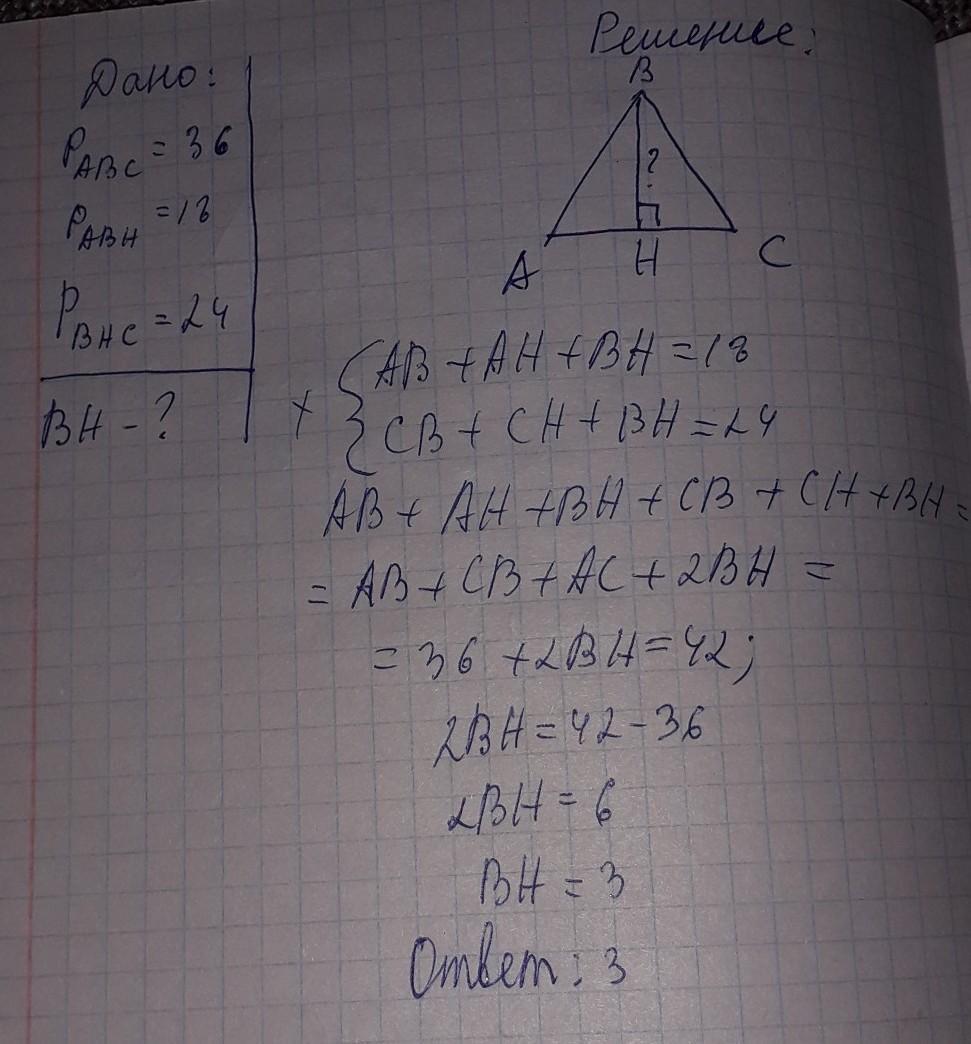 Дано:
P_ABC = 36
P_ABH = 18
P_BHC = 24
BH - ?
Решение:
B
?
A H C
+ { AB + AH + BH = 18
CB + CH + BH = 24
AB + AH + BH + CB + CH + BH =
= AB + CB + AC + 2BH =
= 36 + 2BH = 42;
2BH = 42 - 36
2BH = 6
BH = 3
Ответ: 3